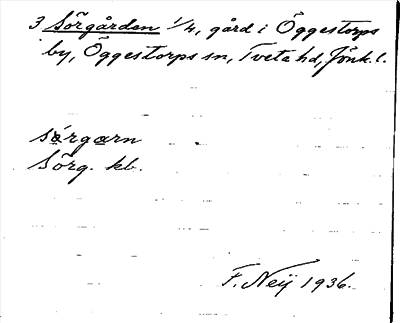 3 Sörgården 1/4, gård i Öggestorps
by, Öggestorps sn, Tveta hd, Jönk. l.
sörgarn
Sörg. kb.
F. Neij 1936.